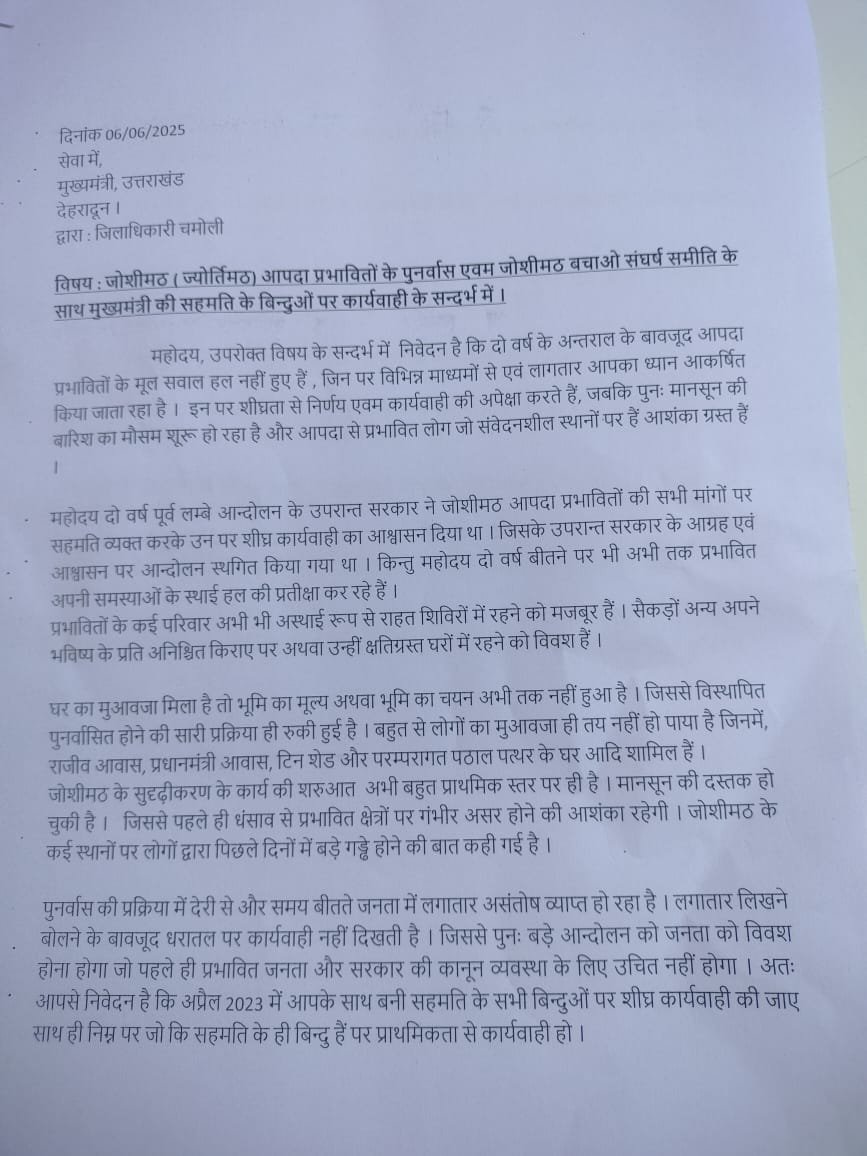 दिनांक 06/06/2025
सेवा में,
मुख्यमंत्री, उत्तराखंड
देहरादून ।
द्वारा : जिलाधिकारी चमोली
विषय : जोशीमठ ( ज्योर्तिमठ) आपदा प्रभावितों के पुनर्वास एवम जोशीमठ बचाओ संघर्ष समीति के
साथ मुख्यमंत्री की सहमति के बिन्दुओं पर कार्यवाही के सन्दर्भ में ।
महोदय, उपरोक्त विषय के सन्दर्भ में निवेदन है कि दो वर्ष के अन्तराल के बावजूद आपदा
प्रभावितों के मूल सवाल हल नहीं हुए हैं , जिन पर विभिन्न माध्यमों से एवं लागतार आपका ध्यान आकर्षित
किया जाता रहा है । इन पर शीघ्रता से निर्णय एवम कार्यवाही की अपेक्षा करते हैं, जबकि पुनः मानसून की
बारिश का मौसम शुरू हो रहा है और आपदा से प्रभावित लोग जो संवेदनशील स्थानों पर हैं आशंका ग्रस्त हैं
।
महोदय दो वर्ष पूर्व लम्बे आन्दोलन के उपरान्त सरकार ने जोशीमठ आपदा प्रभावितों की सभी मांगों पर
सहमति व्यक्त करके उन पर शीघ्र कार्यवाही का आश्वासन दिया था । जिसके उपरान्त सरकार के आग्रह एवं
आश्वासन पर आन्दोलन स्थगित किया गया था । किन्तु महोदय दो वर्ष बीतने पर भी अभी तक प्रभावित
अपनी समस्याओं के स्थाई हल की प्रतीक्षा कर रहे हैं ।
प्रभावितों के कई परिवार अभी भी अस्थाई रूप से राहत शिविरों में रहने को मजबूर हैं । सैकड़ों अन्य अपने
भविष्य के प्रति अनिश्चित किराए पर अथवा उन्हीं क्षतिग्रस्त घरों में रहने को विवश हैं ।
घर का मुआवजा मिला है तो भूमि का मूल्य अथवा भूमि का चयन अभी तक नहीं हुआ है । जिससे विस्थापित
पुनर्वासित होने की सारी प्रक्रिया ही रुकी हुई है । बहुत से लोगों का मुआवजा ही तय नहीं हो पाया है जिनमें,
राजीव आवास, प्रधानमंत्री आवास, टिन शेड और परम्परागत पठाल पत्थर के घर आदि शामिल हैं ।
जोशीमठ के सुदृढ़ीकरण के कार्य की शरुआत अभी बहुत प्राथमिक स्तर पर ही है । मानसून की दस्तक हो
चुकी है । जिससे पहले ही धंसाव से प्रभावित क्षेत्रों पर गंभीर असर होने की आशंका रहेगी । जोशीमठ के
कई स्थानों पर लोगों द्वारा पिछले दिनों में बड़े गड्ढे होने की बात कही गई है ।
पुनर्वास की प्रक्रिया में देरी से और समय बीतते जनता में लगातार असंतोष व्याप्त हो रहा है । लगातार लिखने
बोलने के बावजूद धरातल पर कार्यवाही नहीं दिखती है । जिससे पुनः बड़े आन्दोलन को जनता को विवश
होना होगा जो पहले ही प्रभावित जनता और सरकार की कानून व्यवस्था के लिए उचित नहीं होगा । अतः
आपसे निवेदन है कि अप्रैल 2023 में आपके साथ बनी सहमति के सभी बिन्दुओं पर शीघ्र कार्यवाही की जाए
साथ ही निम्न पर जो कि सहमति के ही बिन्दु हैं पर प्राथमिकता से कार्यवाही हो ।